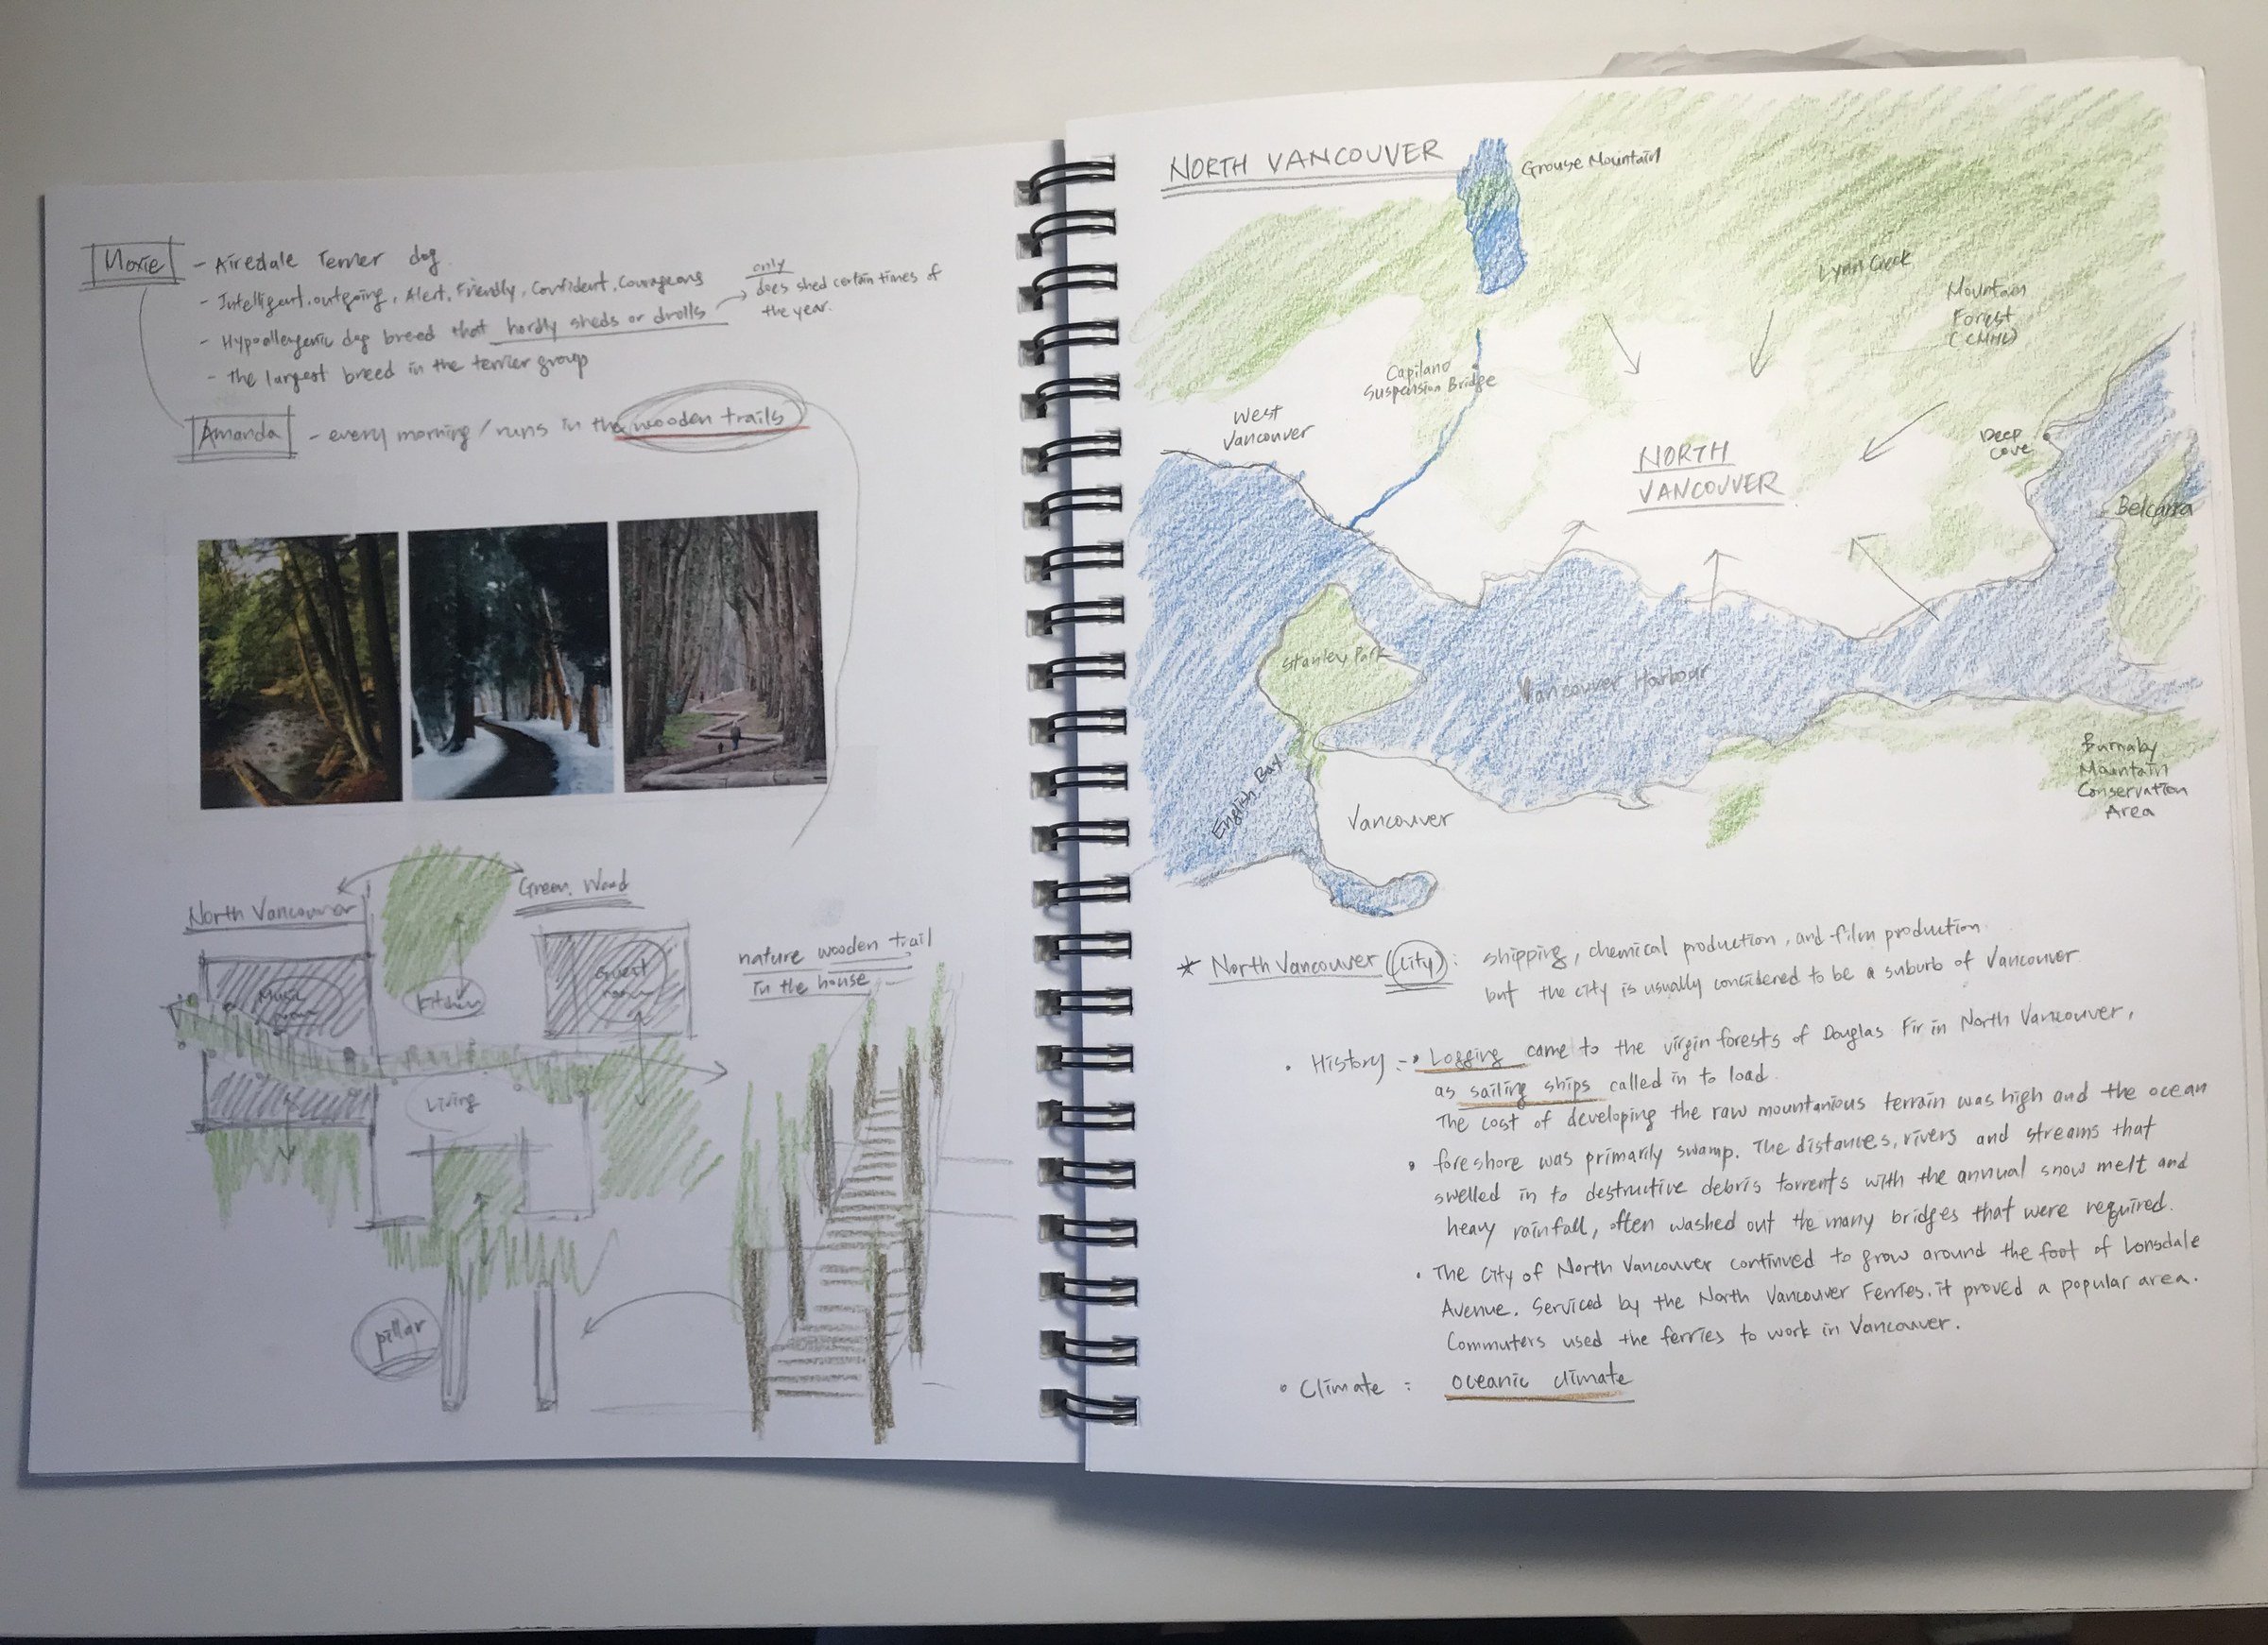 Moxie
- Airedale Terrier dog.
- Intelligent, outgoing, Alert, Friendly, Confident, Courageous
- Hypoallergenic dog breed that hardly sheds or drolls
only
does shed certain times of
the year.
- the largest breed in the terrier group
Amanda - every morning / runs in the wooden trails
North Vancouver
Green. Wood
Music room
Kitchen
Guest room
Living
nature wooden trail
in the house
pillar
NORTH VANCOUVER
Grouse Mountain
Lynn Creek
Mountain
Forest
(CMHC)
Capilano
Suspension Bridge
West
Vancouver
Deep
Cove
NORTH
VANCOUVER
Belcarra
Stanley Park
Vancouver Harbour
English Bay
Vancouver
Burnaby
Mountain
Conservation
Area
* North Vancouver (City) : shipping, chemical production, and film production
but the city is usually considered to be a suburb of Vancouver
• History - • Logging came to the virgin forests of Douglas Fir in North Vancouver,
as sailing ships called in to load.
The cost of developing the raw mountanious terrain was high and the ocean
• foreshore was primarily swamp. The distances, rivers and streams that
swelled in to destructive debris torrents with the annual snow melt and
heavy rainfall, often washed out the many bridges that were required.
• The City of North Vancouver continued to grow around the foot of Lonsdale
Avenue. Serviced by the North Vancouver Ferries, it proved a popular area.
Commuters used the ferries to work in Vancouver.
• Climate : oceanic climate